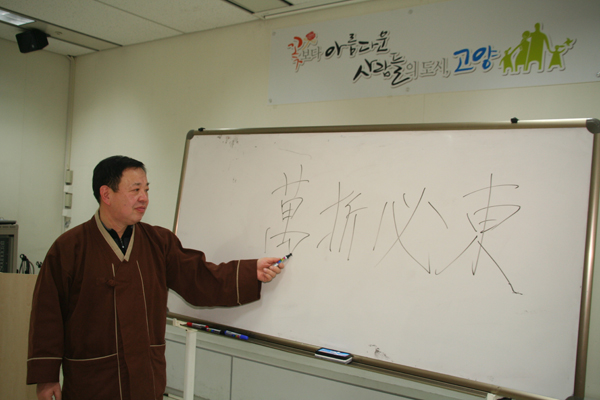 꽃보다 아름다운
사람들의 도시, 고양
萬折必東